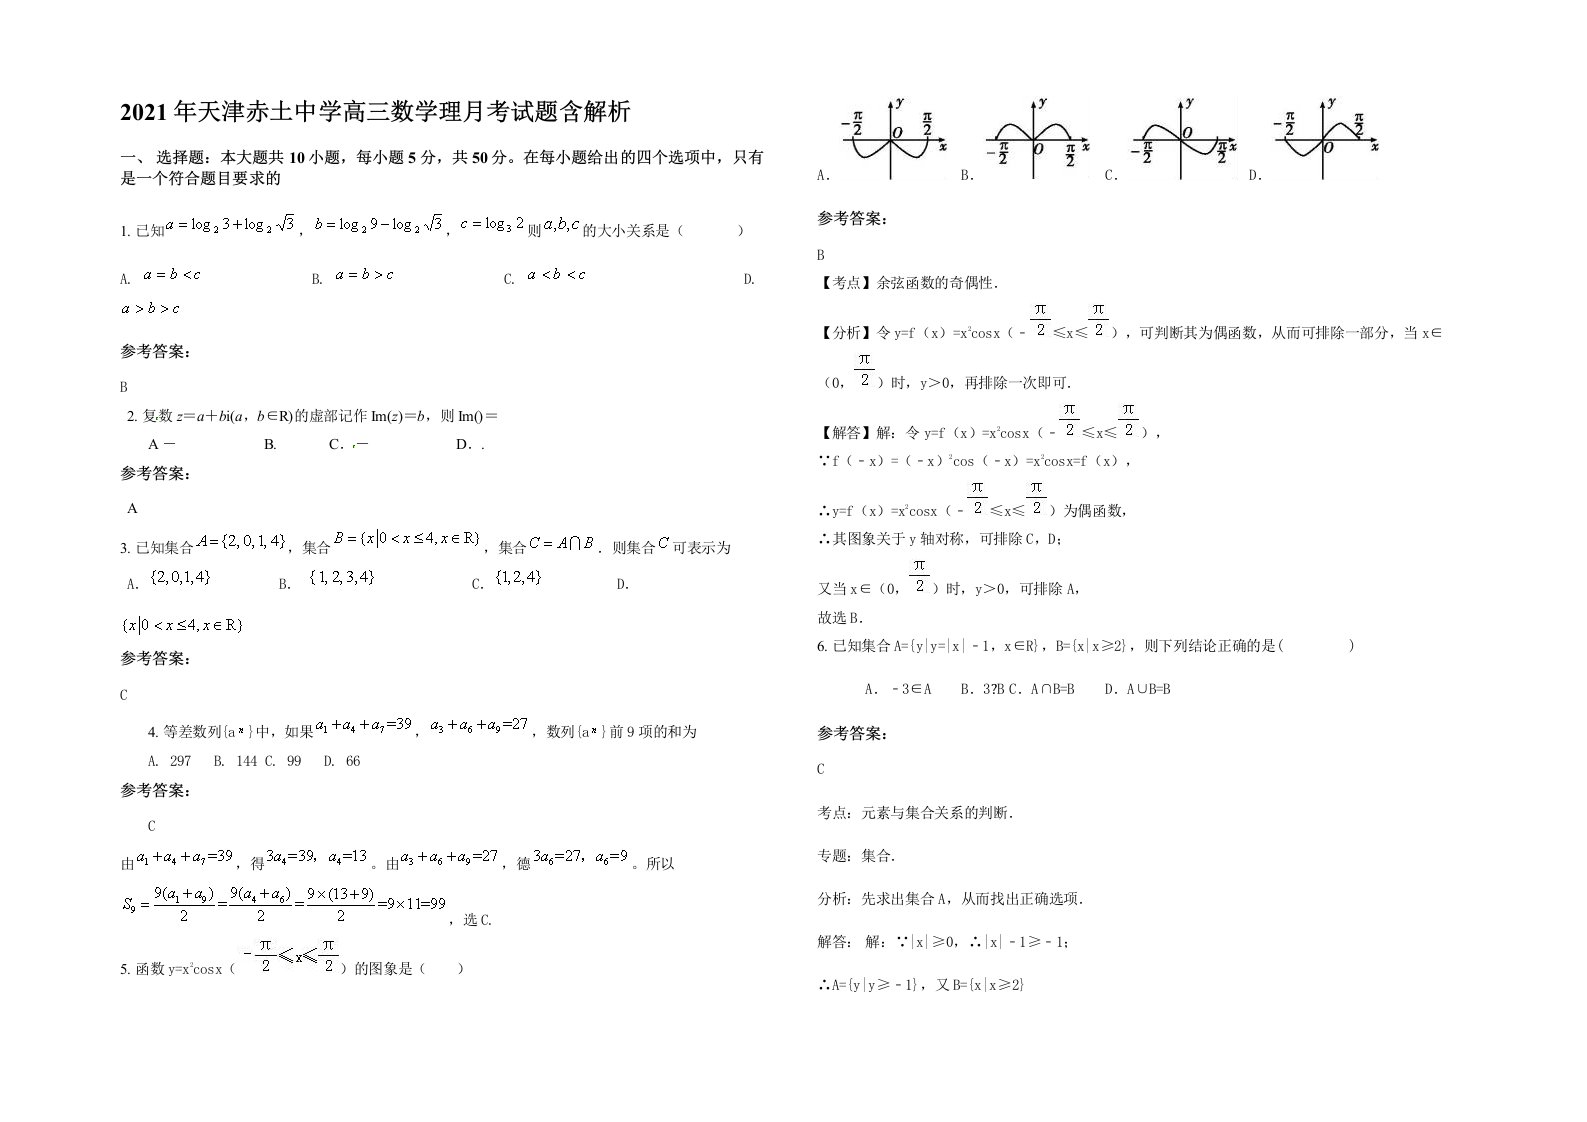 2021 年天津赤土中学高三数学理月考试题含解析
一、 选择题：本大题共 10 小题，每小题 5 分，共 50 分。在每小题给出的四个选项中，只有
是一个符合题目要求的
1. 已知a = log₂3+log₂√3，b = log₂9−log₂√3，c = log₃2则a,b,c的大小关系是（　　）
A. a = b < c　B. a = b > c　C. a < b < c　D.
a > b > c
参考答案：
B
2. 复数 z＝a＋bi(a，b∈R)的虚部记作 Im(z)＝b，则 Im()＝
A －　B.　C．－　D．.
参考答案：
A
3. 已知集合A={2,0,1,4}，集合B={x|0<x≤4,x∈R}，集合C=A∩B．则集合C可表示为
A．{2,0,1,4}　B．{1,2,3,4}　C．{1,2,4}　D．
{x|0<x≤4,x∈R}
参考答案：
C
4. 等差数列{aₙ}中，如果a₁+a₄+a₇=39，a₃+a₆+a₉=27，数列{aₙ}前 9 项的和为
A. 297　B. 144 C. 99　D. 66
参考答案：
C
由a₁+a₄+a₇=39，得3a₄=39，a₄=13。由a₃+a₆+a₉=27，德3a₆=27，a₆=9。所以
S₉=9(a₁+a₉)/2=9(a₄+a₆)/2=9×(13+9)/2=9×11=99，选 C.
5. 函数 y=x²cosx（－π/2≤x≤π/2）的图象是（　　）
A．－π/2 y O π/2 x　B．y －π/2 O π/2 x　C．y －π/2 O π/2 x　D．－π/2 y O π/2 x
参考答案：
B
【考点】余弦函数的奇偶性．
【分析】令 y=f（x）=x²cosx（﹣π/2≤x≤π/2），可判断其为偶函数，从而可排除一部分，当 x∈
（0，π/2）时，y＞0，再排除一次即可．
【解答】解：令 y=f（x）=x²cosx（﹣π/2≤x≤π/2），
∵f（﹣x）=（﹣x）²cos（﹣x）=x²cosx=f（x），
∴y=f（x）=x²cosx（﹣π/2≤x≤π/2）为偶函数，
∴其图象关于 y 轴对称，可排除 C，D；
又当 x∈（0，π/2）时，y＞0，可排除 A，
故选 B．
6. 已知集合 A={y|y=|x|﹣1，x∈R}，B={x|x≥2}，则下列结论正确的是(　　)
A．﹣3∈A　B．3?B C．A∩B=B　D．A∪B=B
参考答案：
C
考点：元素与集合关系的判断．
专题：集合．
分析：先求出集合 A，从而找出正确选项．
解答： 解：∵|x|≥0，∴|x|﹣1≥﹣1；
∴A={y|y≥﹣1}，又 B={x|x≥2}